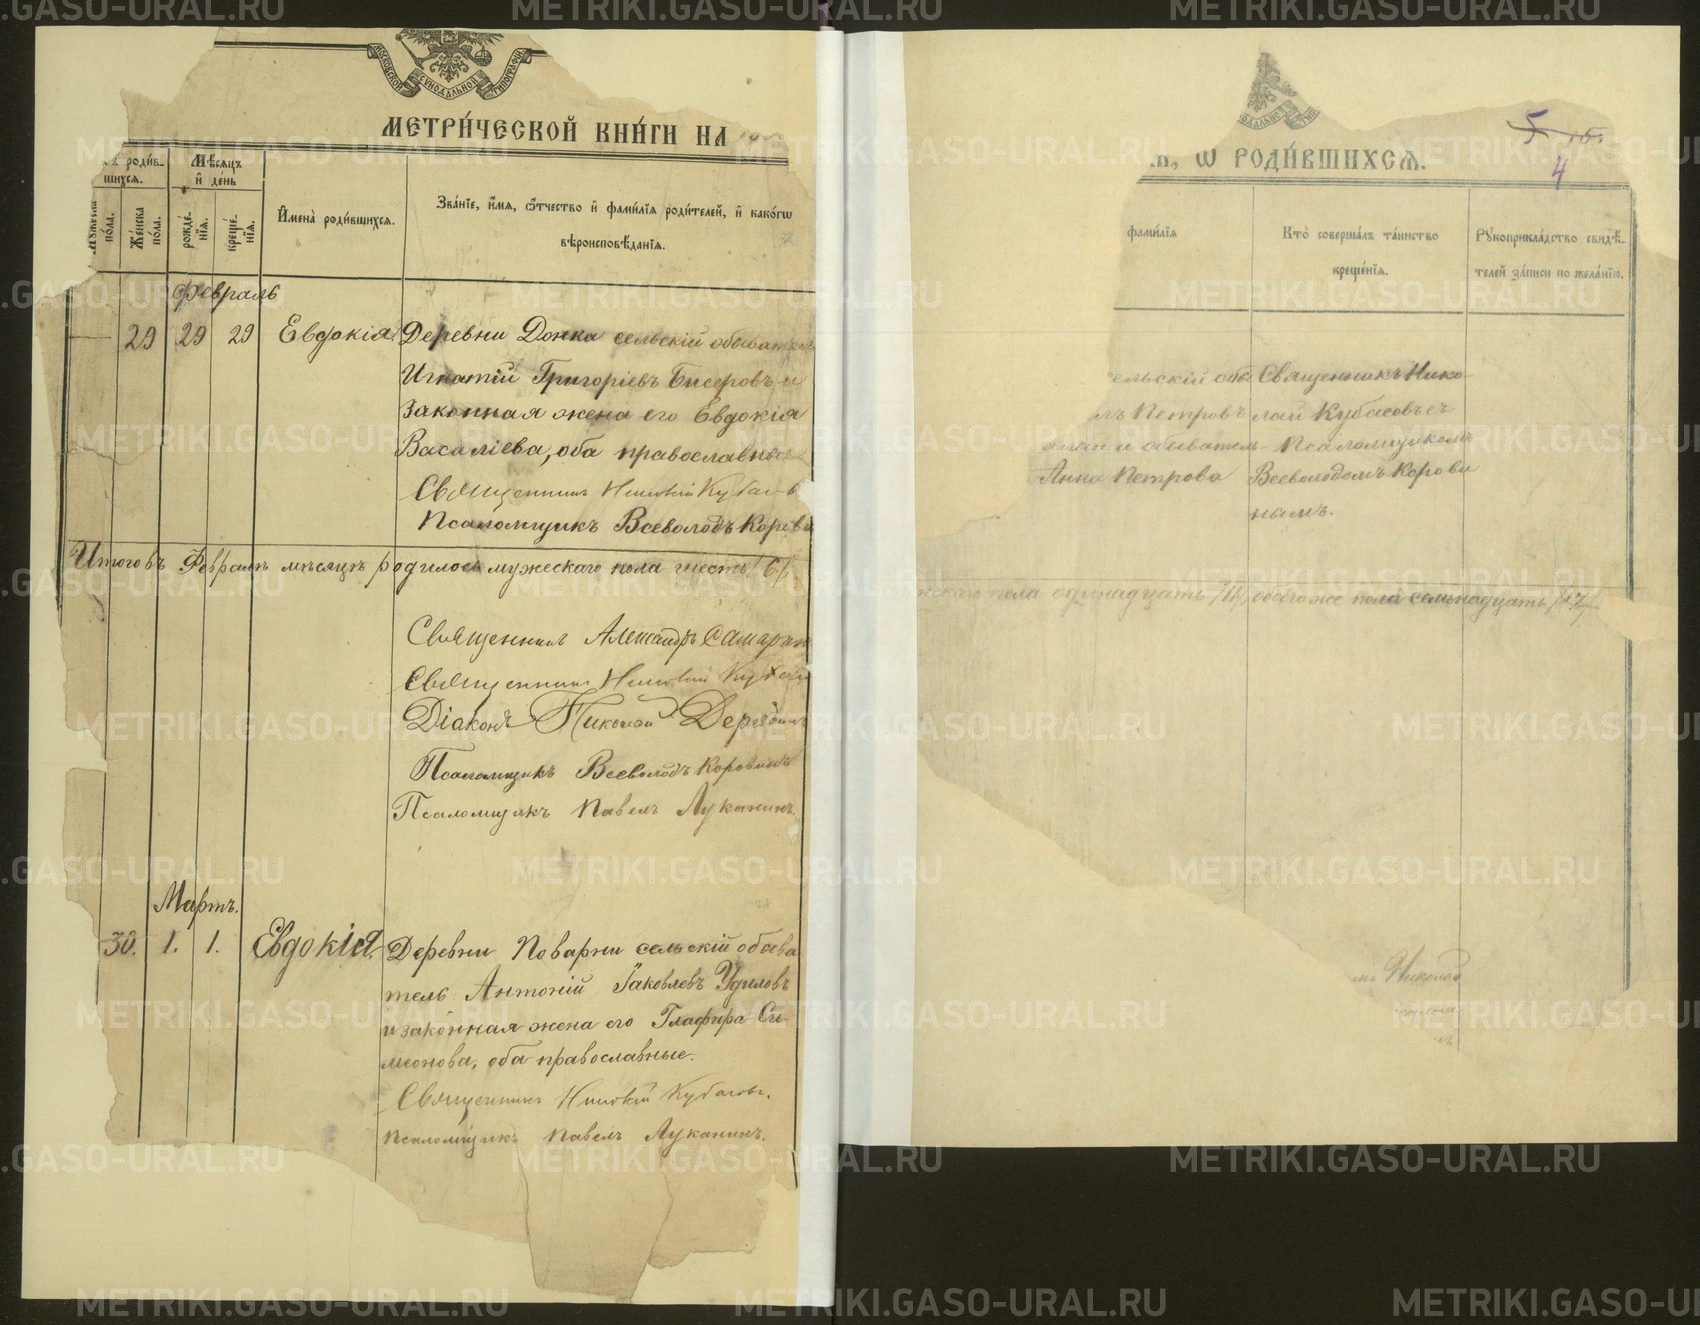 МОСКОВСКОЙ СѴНОДАЛЬНОЙ ТИПОГРАФІИ
МЕТРИ́ЧЕСКОЙ КНИ́ГИ НА
роди́в-
шихся.
Же́нска
по́ла.
Мѣ́сяцъ
и҆ де́нь
рожде́-
нїя.
креще́-
нїя.
И҆мена̀ роди́вшихся.
Зва́нїе, и҆́мя, ѻ҆́тчество и҆ фами́лїя роди́телей, и҆ како́гѡ
вѣроисповѣ́данїя.
Февраль
29 29 29 Евдокія Деревни Донка сельскій обыватель
Игнатій Григоріевъ Бисеровъ и
законная жена его Евдокія
Василіева, оба православные
Священникъ Николай Кубасовъ
Псаломщикъ Всеволодъ Корови
Итого въ Февралѣ мѣсяцѣ родилось мужескаго пола шесть /6/,
Священникъ Александръ
Священникъ Николай Кубасов
Діаконъ Николай
Псаломщикъ Всеволодъ Коровинъ
Псаломщикъ Павелъ Луканинъ.
Мартъ.
30. 1. 1. Евдокія. Деревни Поварни сельскій обыва
тель Антоній Іаковлевъ Удиловъ
и законная жена его Глафира Си-
меонова, оба православные.
Священникъ Николай Кубасовъ.
Псаломщикъ Павелъ Луканинъ.
5
15.
4
Ѡ РОДИ́ВШИХСЯ.
фами́лїя
Кто̀ соверша́лъ та́инство
креще́нїя.
Рꙋкоприкла́дство свидѣ́-
телей за́писи по жела́нїю.
ельскій обы Священникъ Нико
лъ Петровъ лай Кубасовъ съ
обыватель Псаломщикомъ
Анна Петрова Всеволодомъ Корови
нымъ.
нскаго пола одинадцать /11/, обоего же пола семьнадцать /17/.
Николай
METRIKI.GASO-URAL.RU